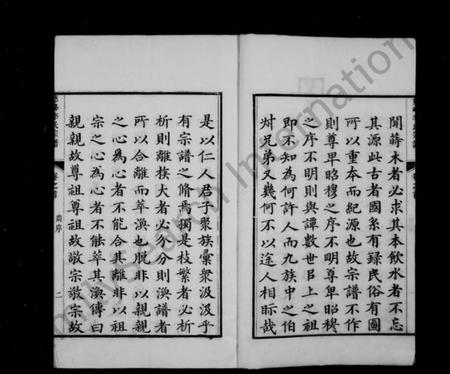 聞蒔木者必求其本飲水者不忘
其源此古者國系有録民俗有圖
所以重本而紀源也故宗譜不作
則尊早昭穆之序不明尊卑昭穆
之序不明則與譚數世㠯上之祖
即不知為何許人而九族中之伯
叔兄弟又幾何不以途人相眎哉
是以仁人君子聚族彙衆汲汲乎
有宗譜之脩焉獨是枝繁者必析
析則離族大者必分分則渙譜者
所以合離而萃渙也脫非以親親
之心為心者不能合其離非以祖
宗之心為心者不能萃其渙傳曰
親親故尊祖尊祖故敬宗敬宗故
舊序
二